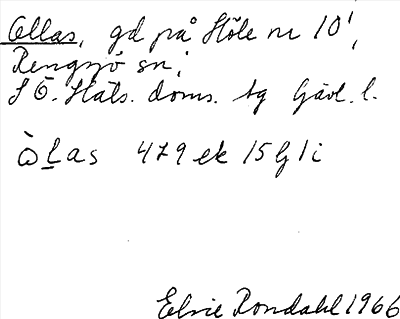 Ollas, gd på Höle nr 10',
Rengsjö sn,
S Ö. Häls. doms. tg Gävl. l.
ὼl̲as 479 ek 15 G 1 i
Elsie Rondahl 1966